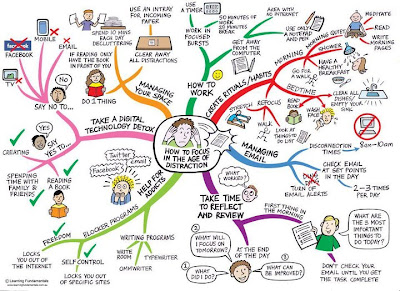 HOW TO FOCUS
IN THE AGE OF
DISTRACTION
MANAGING
YOUR SPACE
CLEAR AWAY
ALL DISTRACTIONS
USE AN INTRAY
FOR INCOMING
PAPER
SPEND 10 MINS
EACH DAY
DECLUTTERING
DO 1 THING
IF READING ONLY
HAVE THE BOOK
IN FRONT OF YOU
HOW TO
WORK
WORK IN
FOCUSED
BURSTS
USE A
TIMER
50 MINUTES OF
WORK 10 MINUTES
BREAK
GET AWAY
FROM THE
COMPUTER
AREA WITH
NO INTERNET
USE ONLY
NOTEPAD
AND PEN
CREATE RITUALS/HABITS
MORNING
MORNING QUIET
MEDITATE
READ
WRITE
MORNING
PAGES
SHOWER
HAVE A
HEALTHY
BREAKFAST
GO FOR
A WALK
BEDTIME
CLEAN ALL
DISHES/
EMPTY
SINK
WASH
FACE
READ
BOOK
REFOCUS
LOOK
AT
TO
DO LIST
WALK
STRETCH
MANAGING
EMAIL
DISCONNECTION
TIMES
8am-10am
CHECK EMAIL
AT SET POINTS
IN THE DAY
2-3 TIMES
PER DAY
TURN OFF
EMAIL ALERTS
TAKE TIME
TO REFLECT
AND REVIEW
WHAT
WORKED?
FIRST THING
IN THE MORNING
WHAT ARE THE 3
MOST IMPORTANT
THINGS TO
DO TODAY?
DON'T CHECK YOUR
EMAIL UNTIL YOU GET
THE TASK COMPLETE
AT THE END OF
THE DAY
1
WHAT
DID I DO?
2
WHAT WILL
I FOCUS ON
TOMORROW?
3
WHAT CAN BE
IMPROVED?
HELP FOR
ADDICTS
Twitter
email
Facebook
BLOCKER PROGRAMS
FREEDOM
LOCKS YOU OUT
OF THE INTERNET
SELF CONTROL
LOCKS YOU OUT
OF SPECIFIC SITES
WRITING PROGRAMS
WRITE
ROOM
TYPEWRITER
OMMWRITER
TAKE A DIGITAL
TECHNOLOGY DETOX
SAY NO TO...
No
TV
FACEBOOK
facebook
MOBILE
EMAIL
SAY
YES TO...
Yes
CREATING
SPENDING
TIME WITH
FAMILY &
FRIENDS
READING
A BOOK
© Learning Fundamentals